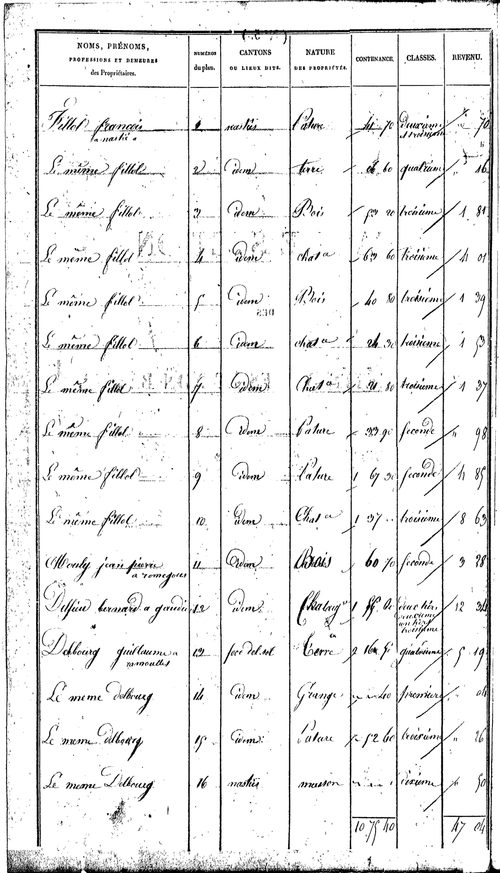 NOMS, PRÉNOMS, PROFESSIONS ET DEMEURES des Propriétaires. NUMÉROS du plan. CANTONS OU LIEUX DITS. NATURE DES PROPRIÉTÉS. CONTENANCE. CLASSES. REVENU.
Fillol francois 1 nastiés Pature 41 70 deuxieme 70
a nastié
Le même fillol 2 idem terre 60 quatrieme 16
Le même fillol 3 idem Bois 53 20 troisieme 1 81
Le même fillol 4 idem chat.a 63 60 troisieme 4 01
Le même fillol 5 idem Bois 40 80 troisieme 1 39
Le même fillol 6 idem chat.a 24 30 troisieme 1 53
Le même fillol 7 idem Chat.a 21 80 troisieme 1 37
Le même fillol 8 idem Pature 33 90 seconde 98
Le même fillol 9 idem Pature 1 67 30 seconde 4 85
Le même fillol 10 idem Chat.a 1 37 troisieme 8 63
Mouly jean pierre 11 idem Bois 60 70 seconde 3 28
a romegous
bernard a 12 idem 1 12 34
Delbourg guillaume a 13 del sol Terre 2 16 quatrieme 5 19
ramoulles
Le meme delbourg 14 idem Grange 40 premiere 04
Le meme delbourg 15 idem Pature 52 60 troisieme 26
Le meme Delbourg 16 nastiés maison 50
10 75 40 47 04